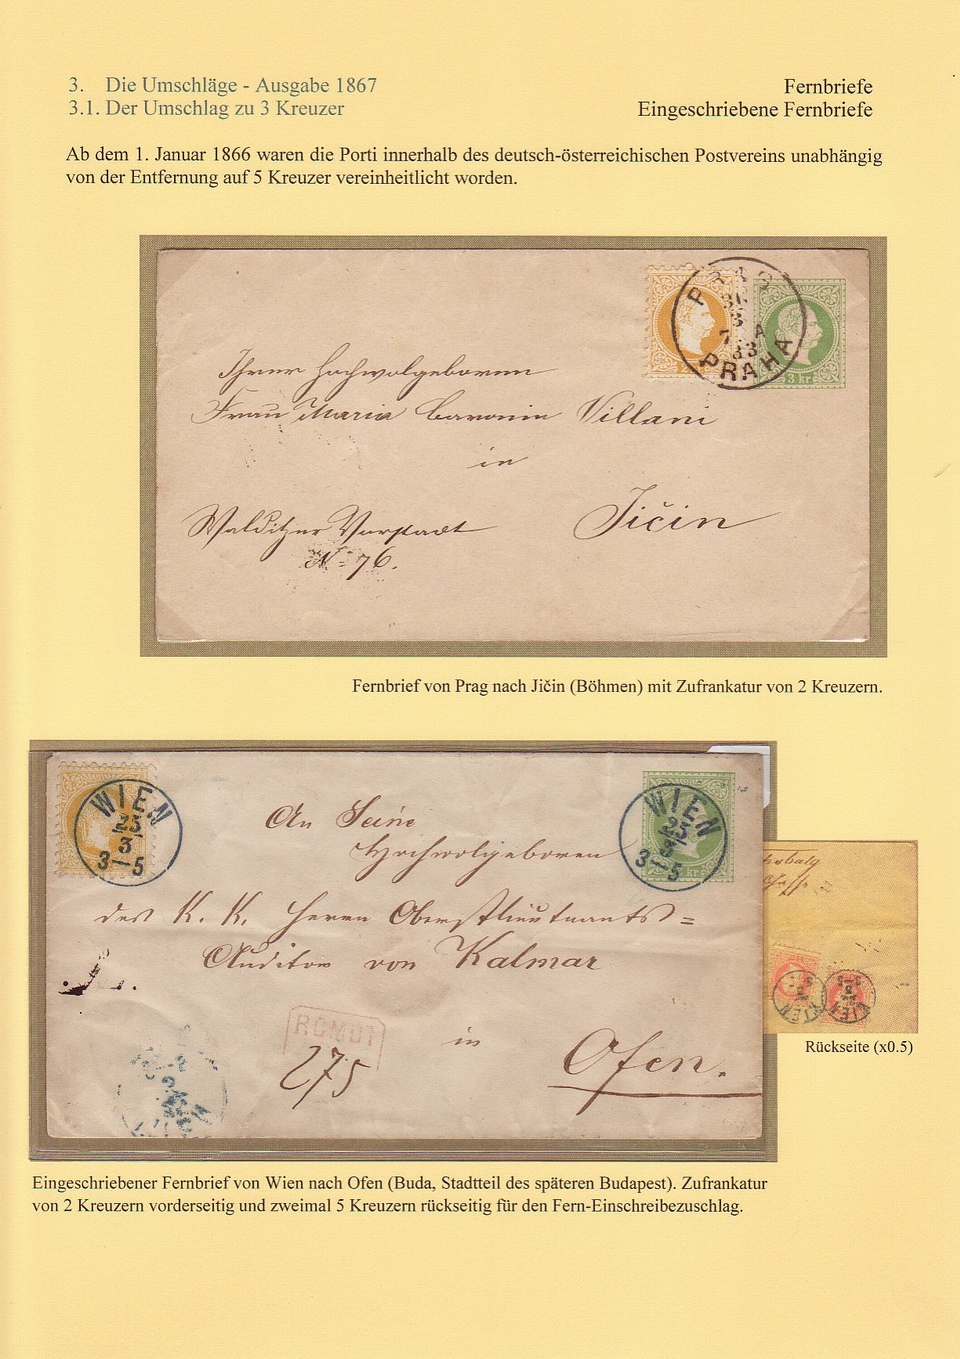 3. Die Umschläge - Ausgabe 1867
3.1. Der Umschlag zu 3 Kreuzer
Fernbriefe
Eingeschriebene Fernbriefe
Ab dem 1. Januar 1866 waren die Porti innerhalb des deutsch-österreichischen Postvereins unabhängig
von der Entfernung auf 5 Kreuzer vereinheitlicht worden.
PRAG
31
3
7 A
83
PRAHA
3 kr.
Ihrer Hochwolgeboren
Frau Maria Baronin Villani
in
Jičin
Walditzer Vorstadt
N= 76.
Fernbrief von Prag nach Jičin (Böhmen) mit Zufrankatur von 2 Kreuzern.
WIEN
23
3
3-5
WIEN
23
3
3-5
An Seine
Hochwolgeboren
des K. K. Herrn Oberstlieutnants=
Auditor von Kalmar
in
Ofen.
RCMDT
275
WIEN
WIEN
Rückseite (x0.5)
Eingeschriebener Fernbrief von Wien nach Ofen (Buda, Stadtteil des späteren Budapest). Zufrankatur
von 2 Kreuzern vorderseitig und zweimal 5 Kreuzern rückseitig für den Fern-Einschreibezuschlag.